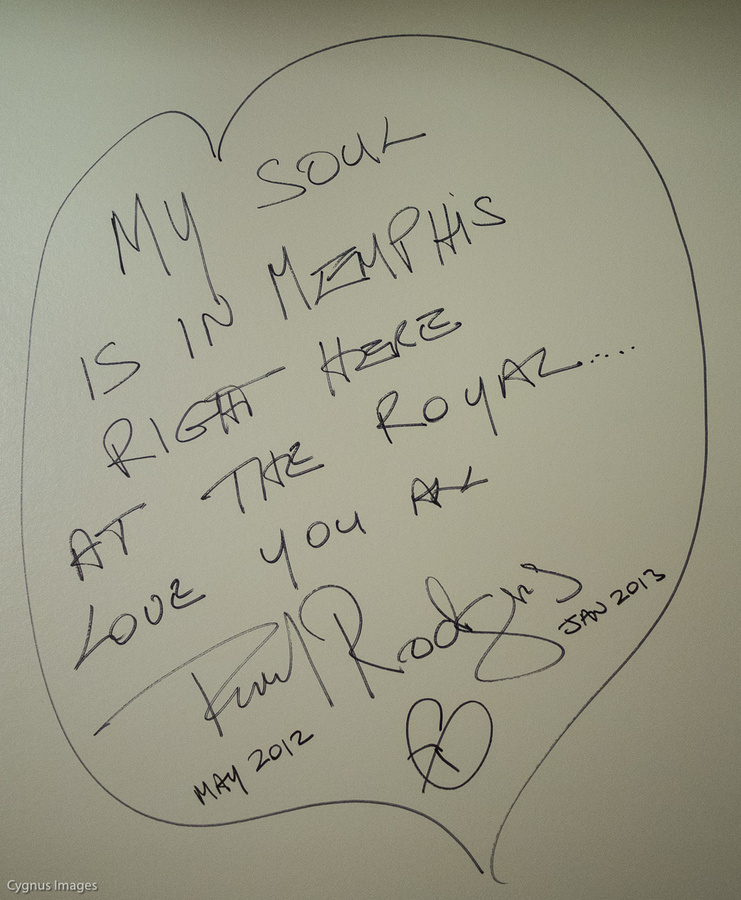 MY SOUL
IS IN MEMPHiS
RIGHT HERE
AT THE ROYAL.....
LOVE YOU ALL
Paul Rodgers
JAN 2013
MAY 2012
Cygnus Images